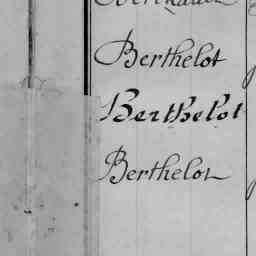 Berthelot
Berthelot
Berthelot